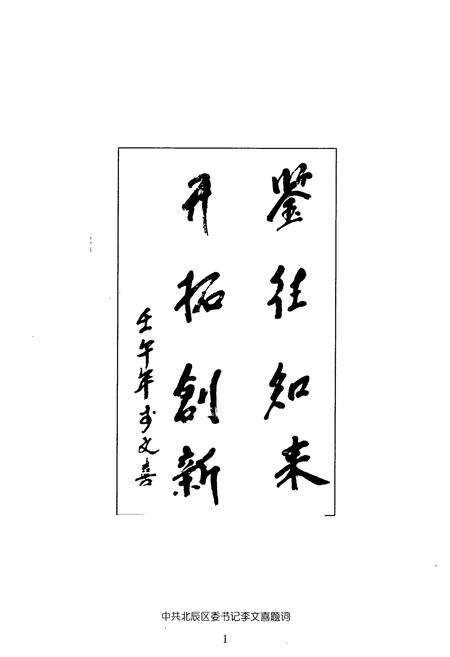 鉴往知来
开拓創新
壬午年李文喜
中共北辰区委书记李文喜题词
1